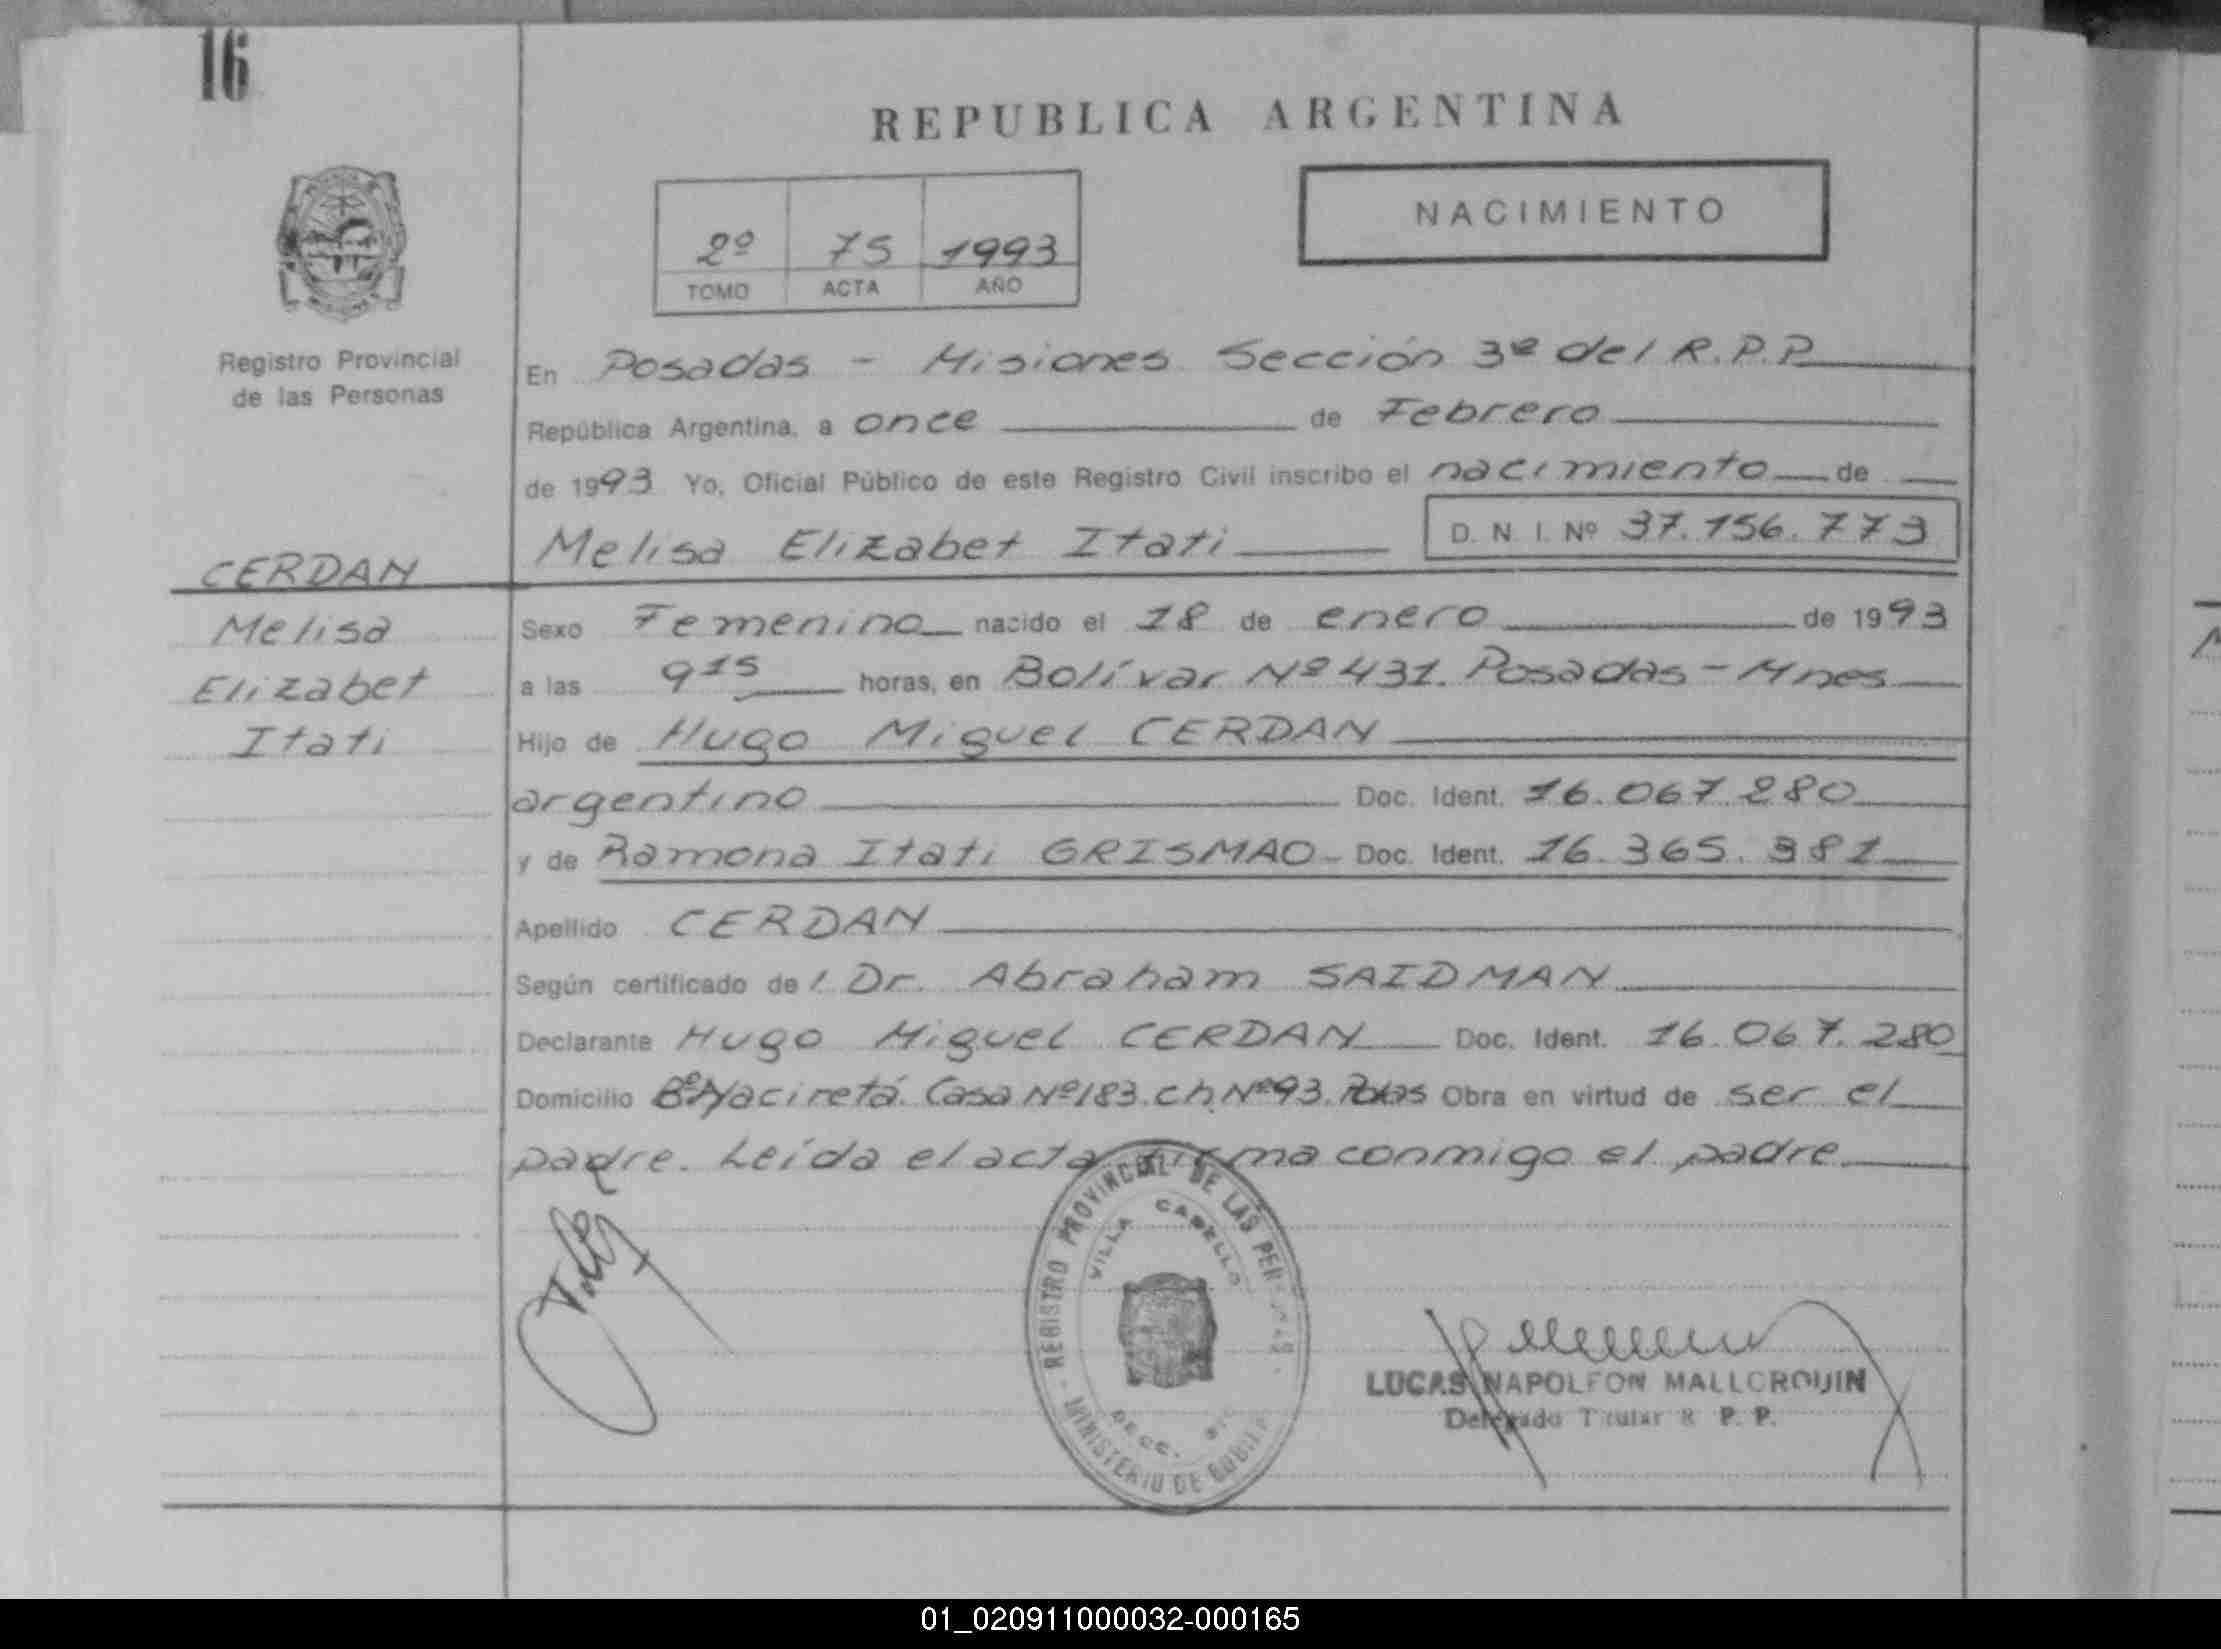 16
REPUBLICA ARGENTINA
NACIMIENTO
2º 75 1993
TOMO ACTA AÑO
Registro Provincial
de las Personas
En Posadas - Misiones Sección 3ª del R.P.P.
República Argentina, a once de Febrero
de 1993 Yo, Oficial Público de este Registro Civil inscribo el nacimiento de
Melisa Elizabet Itati D. N. I. Nº 37.156.773
CERDAN
Melisa
Elizabet
Itati
Sexo Femenino nacido el 18 de enero de 1993
a las 9 15 horas, en Bolívar Nº 431. Posadas - Mnes
Hijo de Hugo Miguel CERDAN
argentino Doc. Ident. 16.067.280
y de Ramona Itati GRISMAO - Doc. Ident. 16.365.381
Apellido CERDAN
Según certificado del Dr. Abraham SAIDMAN
Declarante Hugo Miguel CERDAN Doc. Ident. 16.067.280
Domicilio Bº Yaciretá. Casa Nº 183. ch. Nº 93. Pdas Obra en virtud de ser el
padre. Leída el acta firma conmigo el padre
REGISTRO PROVINCIAL DE LAS PERSONAS
VILLA CABELLO
MINISTERIO DE
LUCAS NAPOLEON MALLORQUIN
Delegado Titular R. P. P.
01_020911000032-000165